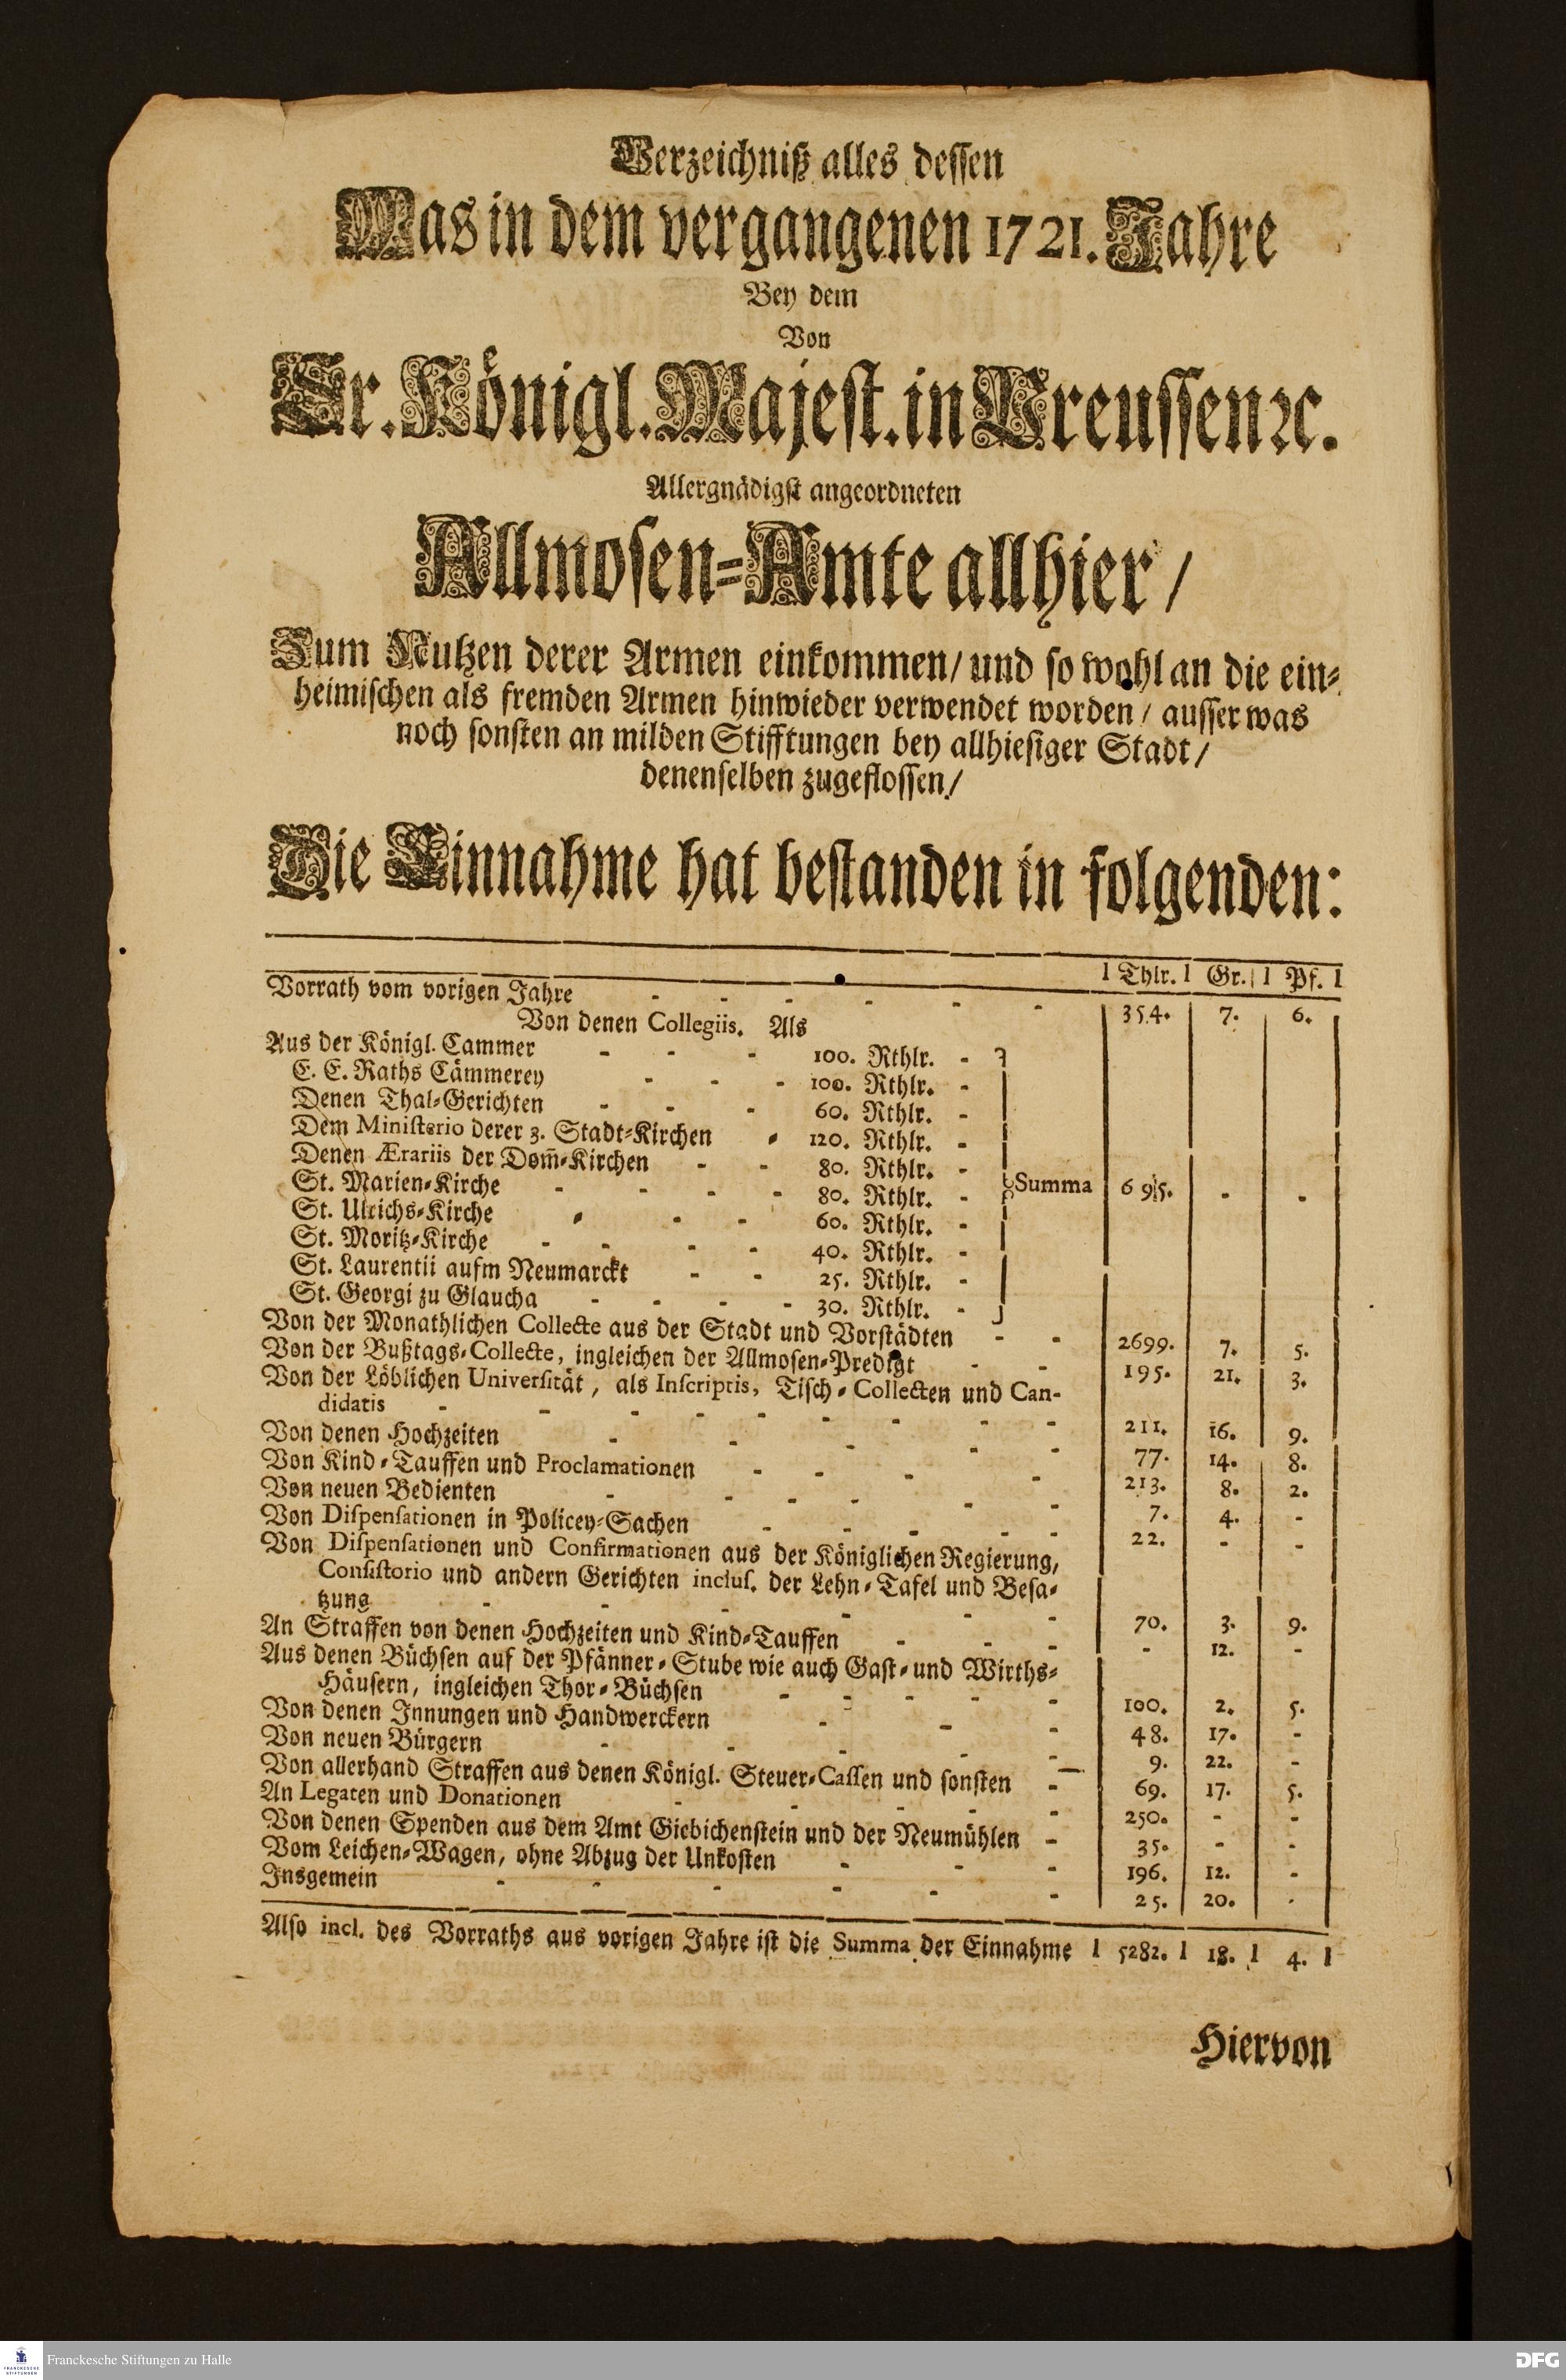 Verzeichniß alles dessen
Was in dem vergangenen 1721. Jahre
Bey dem
Von
Sr. Königl. Majest. in Preussen ꝛc.
Allergnädigst angeordneten
Allmosen-Amte allhier/
Zum Nutzen derer Armen einkommen/ und so wohl an die ein-
heimischen als fremden Armen hinwieder verwendet worden/ ausser was
noch sonsten an milden Stifftungen bey allhiesiger Stadt/
denenselben zugeflossen/
Die Einnahme hat bestanden in folgenden:
| Thlr. | Gr. | Pf. |
Vorrath vom vorigen Jahre - - - - - - 354. 7. 6.
Von denen Collegiis. Als
Aus der Königl. Cammer - - - 100. Rthlr. -
E. E. Raths Cämmerey - - - 100. Rthlr. -
Denen Thal-Gerichten - - - 60. Rthlr. -
Dem Ministerio derer 3. Stadt-Kirchen - 120. Rthlr. -
Denen Ærariis der Dom̄-Kirchen - - 80. Rthlr. -
St. Marien-Kirche - - - - 80. Rthlr. - Summa 695. - -
St. Ulrichs-Kirche - - - 60. Rthlr. -
St. Moritz-Kirche - - - - 40. Rthlr. -
St. Laurentii aufm Neumarckt - - 25. Rthlr. -
St. Georgi zu Glaucha - - - - 30. Rthlr. -
Von der Monathlichen Collecte aus der Stadt und Vorstädten - - 2699. 7. 5.
Von der Bußtags-Collecte, ingleichen der Allmosen-Predigt - - 195. 21. 3.
Von der Löblichen Universität, als Inscriptis, Tisch-Collecten und Can-
didatis - - - - - - - - - 211. 16. 9.
Von denen Hochzeiten - - - - - 77. 14. 8.
Von Kind-Tauffen und Proclamationen - - - - 213. 8. 2.
Von neuen Bedienten - - - - - - 7. 4. -
Von Dispensationen in Policey-Sachen - - - - - 22. - -
Von Dispensationen und Confirmationen aus der Königlichen Regierung,
Consistorio und andern Gerichten inclus. der Lehn-Tafel und Besa-
tzung - - - - - - 70. 3. 9.
An Straffen von denen Hochzeiten und Kind-Tauffen - - - - 12. -
Aus denen Büchsen auf der Pfänner-Stube wie auch Gast- und Wirths-
Häusern, ingleichen Thor-Büchsen - - - - - 100. 2. 5.
Von denen Innungen und Handwerckern - - - 48. 17. -
Von neuen Bürgern - - - - - 9. 22. -
Von allerhand Straffen aus denen Königl. Steuer-Cassen und sonsten - 69. 17. 5.
An Legaten und Donationen - - - - - 250. - -
Von denen Spenden aus dem Amt Giebichenstein und der Neumühlen - 35. - -
Vom Leichen-Wagen, ohne Abzug der Unkosten - - - 196. 12. -
Insgemein - - - - - - 25. 20. -
Also incl. des Vorraths aus vorigen Jahre ist die Summa der Einnahme | 5282. | 18. | 4. |
Hiervon
FRANCKESCHE STIFTUNGEN
Franckesche Stiftungen zu Halle
DFG